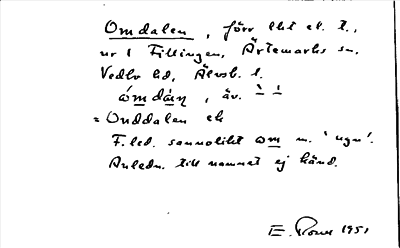 Omdalen, förr lht el. t.,
ur 1 Fillingen, Ärtemarks sn,
Vedbo hd, Älvsb. l.
, äv.
= Onddalen ek
F. led. sannolikt om n. 'ugn'.
Anledn. till namnet ej känd.
E. 1951